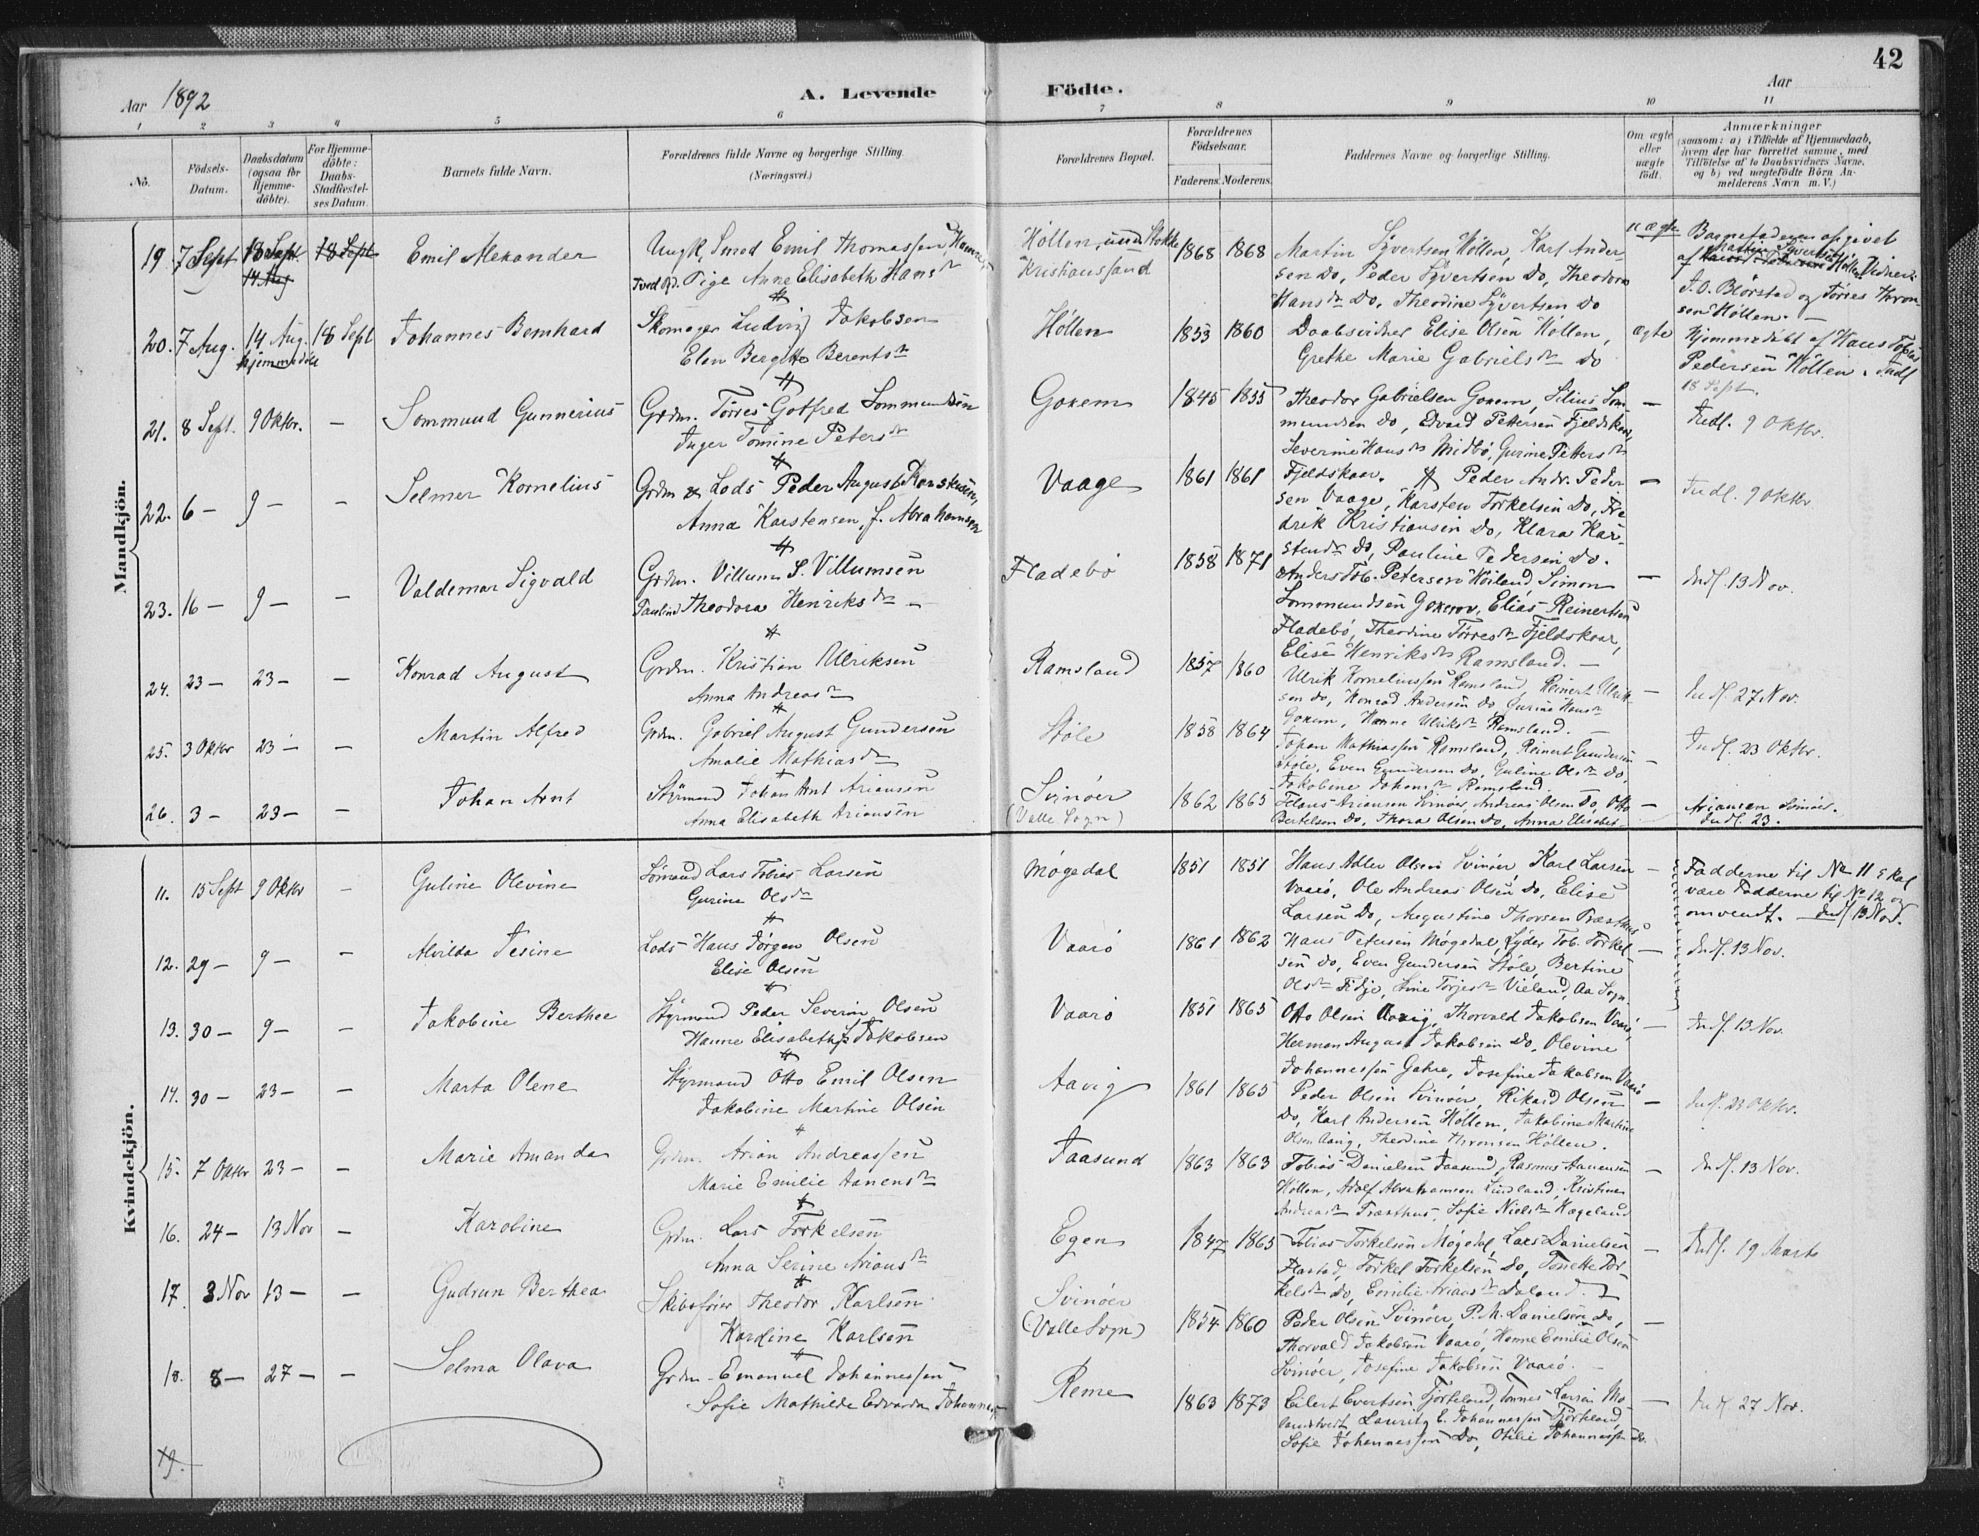 42
Aar 1892
A. Levende Födte.
Aar
1 2 3 4 5 6 7 8 9 10 11
No.
Födsels-Datum.
Daabsdatum (ogsaa for Hjemme-döbte).
For Hjemme-döbte: Daabs-Stadfæstel-ses Datum.
Barnets fulde Navn.
Forældrenes fulde Navne og borgerlige Stilling. (Næringsvei.)
Forældrenes Bopæl.
Forældrenes Födselsaar.
Faderens. Moderens.
Faddernes Navne og borgerlige Stilling.
Om ægte eller uægte födt.
Anmærkninger (saasom: a) i Tilfælde af Hjemmedaab, hvem der har forrettet samme, med Tilföielse af to Daabsvidners Navne, og b) ved uægtefödte Börn An-melderens Navn m. V.)
Mandkjön.
19. 7 Sept 18 Sept. 14 Aug 18 Sept Emil Alexander
Ungk, Smed Emil Thomassen
Pige Anne Elisabeth Hansdr
Höllen
Kristianssand
1868 1868
Martin Syvertsen Höllen, Karl Ander-
sen Do, Peder Syvertsen Do, Theodora
Hansdr Do, Theodine Syvertsen Do
uægte
Barnefaderen opgivet
af Martin Syvertsen Höllen Vidner:
J. O. Blörstad og Törres Thron
sen Höllen. —
20. 7 Aug. 14 Aug. hjemmedöbt 18 Sept Johannes Bernhard
Skomager Ludvig Jakobsen
Elen Bergitte Berentsdr
Höllen 1853 1860
Daabsvidner Elise Olsen Höllen,
Grethe Marie Gabrielsdr Do
ægte
Hjemmedöbt af Hans Tobias
Pedersen Höllen. Indl
18 Sept.
21. 8 Sept. 9 Oktbr. — Sommund Gunnerius
Grdm. Törres Gotfred Sommundsen
Inger Tomine Petersdr
Goxem 1845 1855
Theodor Gabrielsen Goxem, Silius Som-
mundsen Do, Edvard Pettersen Fjeldskaar,
Severine Hansdr Midbö, Gurine Pettersdr
Fjeldskaar.
—
Indl. 9 Oktbr.
22. 6 — 9 — — Selmer Kornelius
Grdm & Lods Peder August Karstensen,
Anna Karstensen, f. Abrahamsen
Vaage 1861 1861
Peder Andr. Peder-
sen Vaage, Karsten Torkelsen Do, Fre
drik Kristiansen Do, Klara Kar-
stensdr Do, Pauline Pedersen Do.
—
Indl. 9 Oktbr
23. 16 — 9 — — Valdemar Sigvald
Grdm. Villum S. Villumsen
Pauline Theodora Henriksdr —
Fladebö 1858 1871
Anders Tob. Petersen Höiland, Simon
Sommundsen Goxem, Elias Reinertsen
Fladebö, Theodine Törresdr Fjeldskaar,
Elise Henriksdr Ramsland. —
—
Indl. 13 Nov.
24. 23 — 23 — — Konrad August
Grdm. Kristian Ulriksen
Anna Andreasdr
Ramsland 1857 1860
Ulrik Korneliussen Ramsland, Reinert Ulrik-
sen Do, Konrad Andersen Do, Gurine Hansdr
Goxem, Hanne Ulriksdr Ramsland.
—
Indl. 27 Nov.
25. 3 Oktbr 23 — — Martin Alfred
Grdm. Gabriel August Gundersen
Amalie Mathiasdr
Stöle 1858 1864
Johan Mathiassen Ramsland, Reinert Gundersen
Stöle, Even Gundersen Do, Guline Olsdr Do,
Jakobine Johansdr Ramsland.
—
Indl. 23 Oktbr.
26. 3 — 23 — — Johan Arnt
Styrmand Johan Arnt Ariansen
Anna Elisabeth Ariansen
Svinöer
(Valle Sogn)
1862 1865
Ariansen Svinöer, Andreas Olsen Do, Otto
Bertelsen Do, Thora Olsen Do, Anna Elisabet
—
Ariansen Svinöer.
Indl. 23.
Kvindekjön.
11. 15 Sept 9 Oktbr — Guline Olevine
Sömand Lars Tobias Larsen
Gurine Olsdr
Mögedal 1851 1851
Hans Adler Olsen Svinöer, Karl Larsen
Vaarö, Ole Andreas Olsen Do, Elise
Larsen Do, Augustine Thorsen Præsthus
—
Fadderne til No 11 skal
være Fadderne til No 12 og
omvendt. — Indl 13 Nov.
12. 29 — 9 — — Alvilda Jesine
Lods Hans Jörgen Olsen
Elise Olsen
Vaarö 1861 1862
Hans Petersen Mögedal, Lyder Tob. Torkel-
sen Do, Even Gundersen Stöle, Bertine
Olsdr Fidje, Sine Torjesdr Vieland, Aa Sogn.
—
Indl. 13 Nov.
13. 30 — 9 — — Jakobine Berthee
Styrmand Peder Severin Olsen
Hanne Elisabeth Jakobsen
Vaarö 1851 1865
Otto Olsen Aavig, Thorvald Jakobsen Vaarö,
Herman August Jakobsen Do, Olevine
Johannessen Gahre, Josefine Jakobsen Vaarö
—
Indl. 13 Nov.
14. 30 — 23 — — Marta Olene
Styrmand Otto Emil Olsen
Jakobine Martine Olsen
Aavig 1861 1865
Peder Olsen Svinöer, Rikard Olsen
Do, Karl Andersen Höllen, Jakobine Martine
Olsen Aavig, Theodine Thronsen Höllen.
—
Indl. 23 Oktbr.
15. 7 Oktbr 23 — — Marie Amanda
Grdm. Arian Andreassen
Marie Emilie Aanensdr
Faasund 1863 1863
Tobias Danielsen Faasund, Rasmus Aanensen
Höllen, Adolf Abrahamsen Lindland, Kristine
Andreasdr Præsthus, Sofie Nielsdr Hægeland
—
Indl. 13 Nov.
16. 24 — 13 Nov — Karoline
Grdm. Lars Torkelsen
Anna Serine Ariansdr
Egen 1847 1865
Tobias Torkelsen Mögedal, Lars Danielsen
Flastad, Torkel Torkelsen Do, Tonette Tor-
kelsdr Do, Emilie Ariansdr Daland.
—
Indl. 19 Marts
17. 3 Nov 13 — — Gudrun Berthea
Skibsförer Theodor Karlsen
Karoline Karlsen
Svinöer
(Valle Sogn)
1854 1860
Peder Olsen Svinöer, P. M. Danielsen Do,
Thorvald Jakobsen Vaarö, Hanne Emilie Olsen
Svinöer, Josefine Jakobsen Vaarö. —
—
18. 8 — 27 — — Selma Olava
Grdm. Emanuel Johannessen
Sofie Mathilde Edvarda Johannessen
Reme 1863 1873
Eilert Evertsen Tjörteland, Tönnes Larsen
Lauritz E. Johannessen Tjörteland,
Sofie Johannessen Do, Otilie Johannessen Do.
—
Indl. 27 Nov.
19.